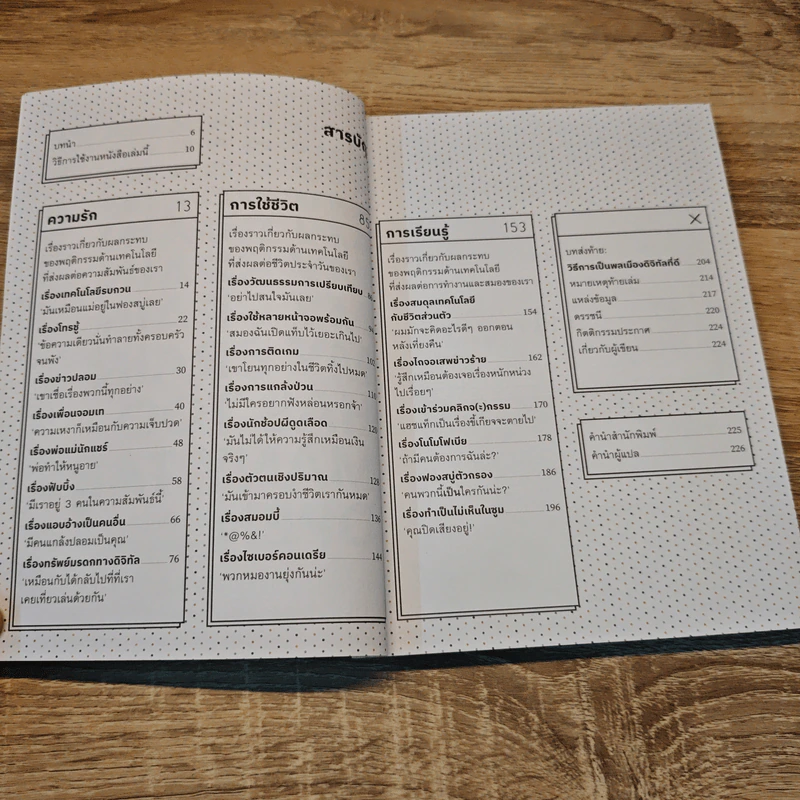 สารบัญ
บทนำ 6
วิธีการใช้งานหนังสือเล่มนี้ 10
ความรัก 13
เรื่องราวเกี่ยวกับผลกระทบ
ของพฤติกรรมด้านเทคโนโลยี
ที่ส่งผลต่อความสัมพันธ์ของเรา
เรื่องเทคโนโลยีรบกวน 14
'มันเหมือนแม่อยู่ในฟองสบู่เลย'
เรื่องโทรซู่ 22
'ข้อความเดียวนั่นทำลายทั้งครอบครัว
จนพัง'
เรื่องข่าวปลอม 30
'เขาเชื่อเรื่องพวกนี้ทุกอย่าง'
เรื่องเพื่อนจอมเท 40
'ความเหงาก็เหมือนกับความเจ็บปวด'
เรื่องพ่อแม่นักแชร์ 48
'พ่อทำให้หนูอาย'
เรื่องฟับบิ้ง 58
'มีเราอยู่ 3 คนในความสัมพันธ์นี้'
เรื่องแอบอ้างเป็นคนอื่น 66
'มีคนแกล้งปลอมเป็นคุณ'
เรื่องทรัพย์มรดกทางดิจิทัล 76
'เหมือนกับได้กลับไปที่ที่เรา
เคยเที่ยวเล่นด้วยกัน'
การใช้ชีวิต 85
เรื่องราวเกี่ยวกับผลกระทบ
ของพฤติกรรมด้านเทคโนโลยี
ที่ส่งผลต่อชีวิตประจำวันของเรา
เรื่องวัฒนธรรมการเปรียบเทียบ
'อย่าไปสนใจมันเลย'
เรื่องใช้หลายหน้าจอพร้อมกัน
'สมองฉันเปิดแท็บไว้เยอะเกินไป'
เรื่องการติดเกม
'เขาโยนทุกอย่างในชีวิตทิ้งไปหมด'
เรื่องการแกล้งป่วน 116
'ไม่มีใครอยากฟังหล่อนหรอกจ้า'
เรื่องนักช้อปผีดูดเลือด 120
'มันไม่ได้ให้ความรู้สึกเหมือนเงิน
จริงๆ'
เรื่องตัวตนเชิงปริมาณ 128
'มันเข้ามาครอบงำชีวิตเรากันหมด'
เรื่องสมอมบี้ 136
'*@%&!'
เรื่องไซเบอร์คอนเดรีย 144
'พวกหมองานยุ่งกันน่ะ'
การเรียนรู้ 153
เรื่องราวเกี่ยวกับผลกระทบ
ของพฤติกรรมด้านเทคโนโลยี
ที่ส่งผลต่อการทำงานและสมองของเรา
เรื่องสมดุลเทคโนโลยี
กับชีวิตส่วนตัว 154
'ผมมักจะคิดอะไรดีๆ ออกตอน
หลังเที่ยงคืน'
เรื่องไถจอเสพข่าวร้าย 162
'รู้สึกเหมือนต้องเจอเรื่องหนักหน่วง
ไปเรื่อยๆ'
เรื่องเข้าร่วมคลิกจ(ะ)กรรม 170
'แฮชแท็กเป็นเรื่องขี้เกียจจะตายไป'
เรื่องโนโมโฟเบีย 178
'ถ้ามีคนต้องการฉันล่ะ?'
เรื่องฟองสบู่ตัวกรอง 186
'คนพวกนี้เป็นใครกันน่ะ?'
เรื่องทำเป็นไม่เห็นในซูม 196
'คุณปิดเสียงอยู่!'
บทส่งท้าย:
วิธีการเป็นพลเมืองดิจิทัลที่ดี 204
หมายเหตุท้ายเล่ม 214
แหล่งข้อมูล 217
ดรรชนี 220
กิตติกรรมประกาศ 224
เกี่ยวกับผู้เขียน 224
คำนำสำนักพิมพ์ 225
คำนำผู้แปล 226